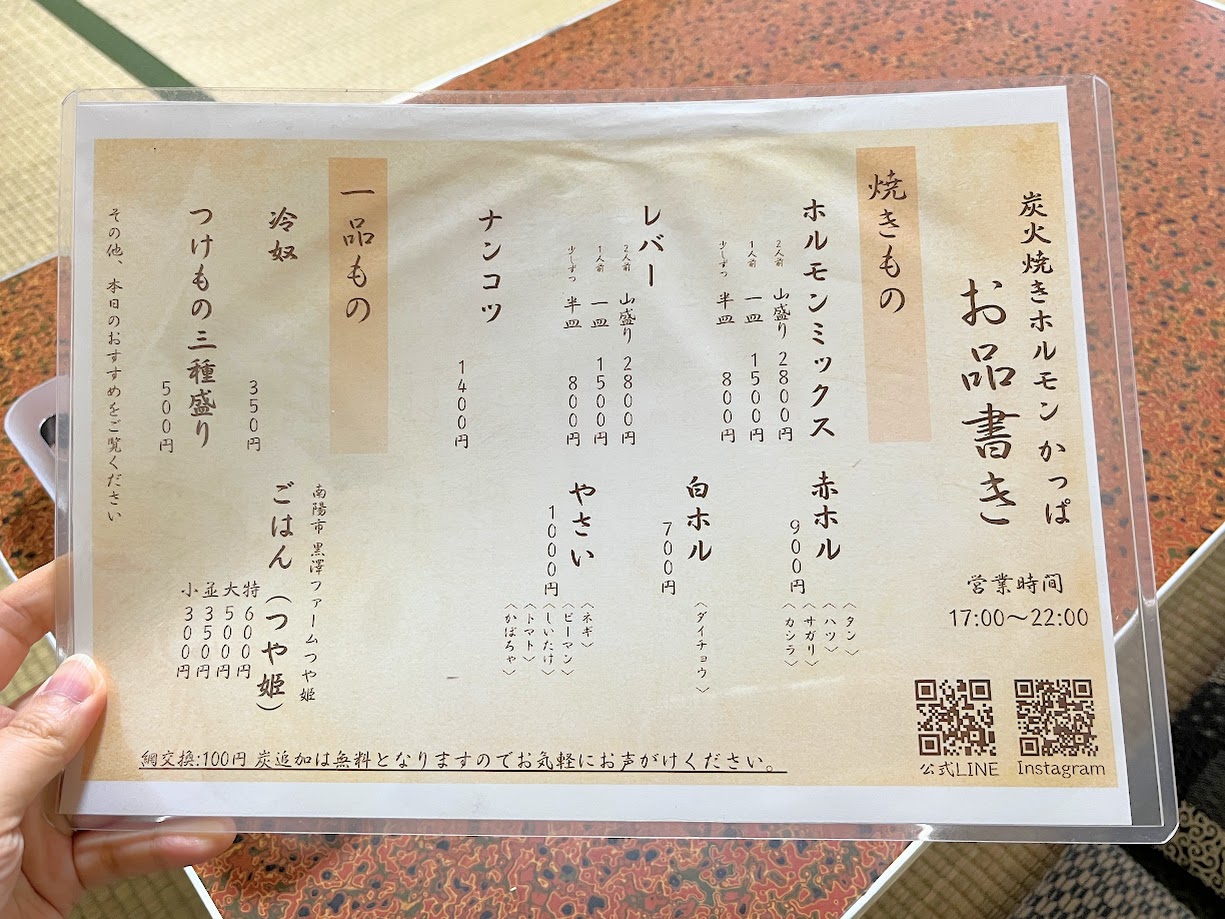 炭火焼きホルモン かっぱ
お品書き
営業時間
17:00～22:00
公式LINE
Instagram
焼きもの
ホルモンミックス
2人前 山盛り 2800円
1人前 一皿 1500円
少しずつ 半皿 800円
赤ホル
900円
〈タン〉
〈ハツ〉
〈サガリ〉
〈カシラ〉
レバー
2人前 山盛り 2800円
1人前 一皿 1500円
少しずつ 半皿 800円
白ホル
700円
〈ダイチョウ〉
ナンコツ
1400円
やさい
1000円
〈ネギ〉
〈ピーマン〉
〈しいたけ〉
〈トマト〉
〈かぼちゃ〉
一品もの
冷奴
350円
つけもの三種盛り
500円
南陽市 黒澤ファームつや姫
ごはん(つや姫)
特 600円
大 500円
並 350円
小 300円
その他、本日のおすすめをご覧ください
網交換:100円 炭追加は無料となりますのでお気軽にお声がけください。